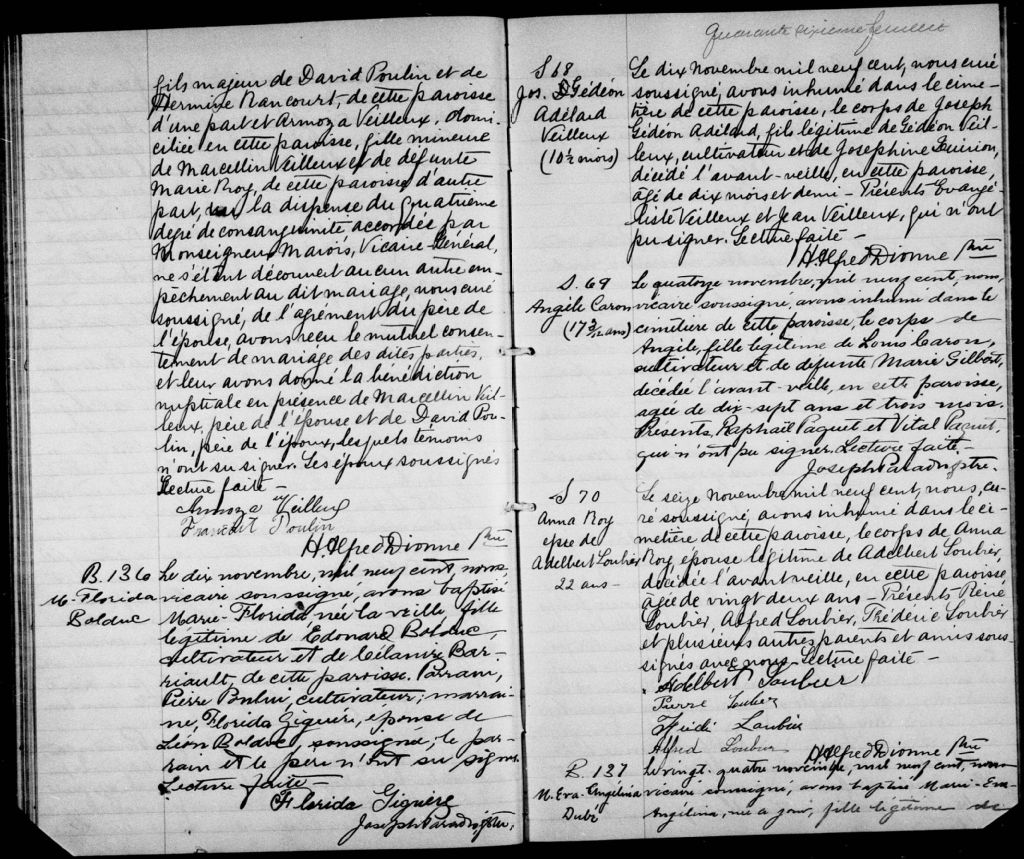 fils majeur de David Poulin et de
Hermine Rancourt, de cette paroisse
d'une part et Armoza Veilleux, domi-
ciliée en cette paroisse, fille mineure
de Marcellin Veilleux et de défunte
Marie Roy, de cette paroisse d'autre
part, vu la dispense du quatrième
degré de consanguinité accordée par
Monseigneur Marois, Vicaire Général,
ne s'étant découvert aucun autre em-
pêchement au dit mariage, nous curé
soussigné, de l'agrément du père de
l'épouse, avons reçu le mutuel consen-
tement de mariage des dites parties,
et leur avons donné la bénédiction
nuptiale en présence de Marcellin Veil-
leux, père de l'épouse et de David Pou-
lin, père de l'époux, lesquels témoins
n'ont su signer. Les époux soussignés
Lecture faite -
Armoza Veilleux
Poulin
H. Alfred Dionne Ptre
B. 136
M. Florida
Bolduc
Le dix novembre, mil neuf cent, nous,
vicaire soussigné, avons baptisé
Marie-Florida née la veille fille
légitime de Edouard Bolduc,
cultivateur et de Célanire Bar-
riault, de cette paroisse. Parrain,
Pierre Poulin, cultivateur; marrai-
ne, Florida Giguère, épouse de
Léon Bolduc, soussignée; le par-
rain et le père n'ont su signer
Lecture faite
Florida Giguère
Joseph Paradis, ptre,
Quarante sixième feuillet
S 68
Jos. Gédéon
Adélard
Veilleux
(10½ mois)
Le dix Novembre mil neuf cent, nous curé
soussigné, avons inhumé dans le cime-
tière de cette paroisse, le corps de Joseph
Gédéon Adélard, fils légitime de Gédéon Veil-
leux, cultivateur et de Josephine Guérion,
décédé l'avant-veille, en cette paroisse,
agé de dix mois et demi - Présents Evangé
liste Veilleux et Jean Veilleux, qui n'ont
pu signer. Lecture faite -
H. Alfred Dionne Ptre
S. 69
Angèle Caron
(17 3/12 ans)
Le quatorze novembre, mil neuf cent, nous,
vicaire soussigné, avons inhumé dans le
cimitière de cette paroisse, le corps de
Angèle, fille légitime de Louis Caron,
cultivateur et de défunte Marie Gilbert,
décédée l'avant-veille, en cette paroisse,
agée de dix-sept ans et trois mois.
Présents, Raphaël Paquet et Vital Paquet,
qui n'ont pu signer. Lecture faite. -
Joseph Paradis, ptre.
S 70
Anna Roy
épse de
Adelbert Loubier
22 ans -
Le seize Novembre mil neuf cent, nous, cu-
ré soussigné, avons inhumé dans le ci-
metière de cette paroisse, le corps de Anna
Roy, épouse légitime de Adelbert Loubier,
décédée l'avant veille, en cette paroisse,
âgée de vingt deux ans - Présents René
Loubier, Alfred Loubier, Frédéric Loubier
et plusieurs autres parents et amis sous-
signés avec nous - Lecture faite -
Adelbert Loubier
Pierre Loubier
Loubier
Alfred Loubier
H Alfred Dionne Ptre
B. 137
M. Eva-Angelina
Dubé
Le vingt-quatre novembre, mil neuf cent, nous
vicaire soussigné, avons baptisé Marie-Eva-
Angelina, née a jour, fille légitime de